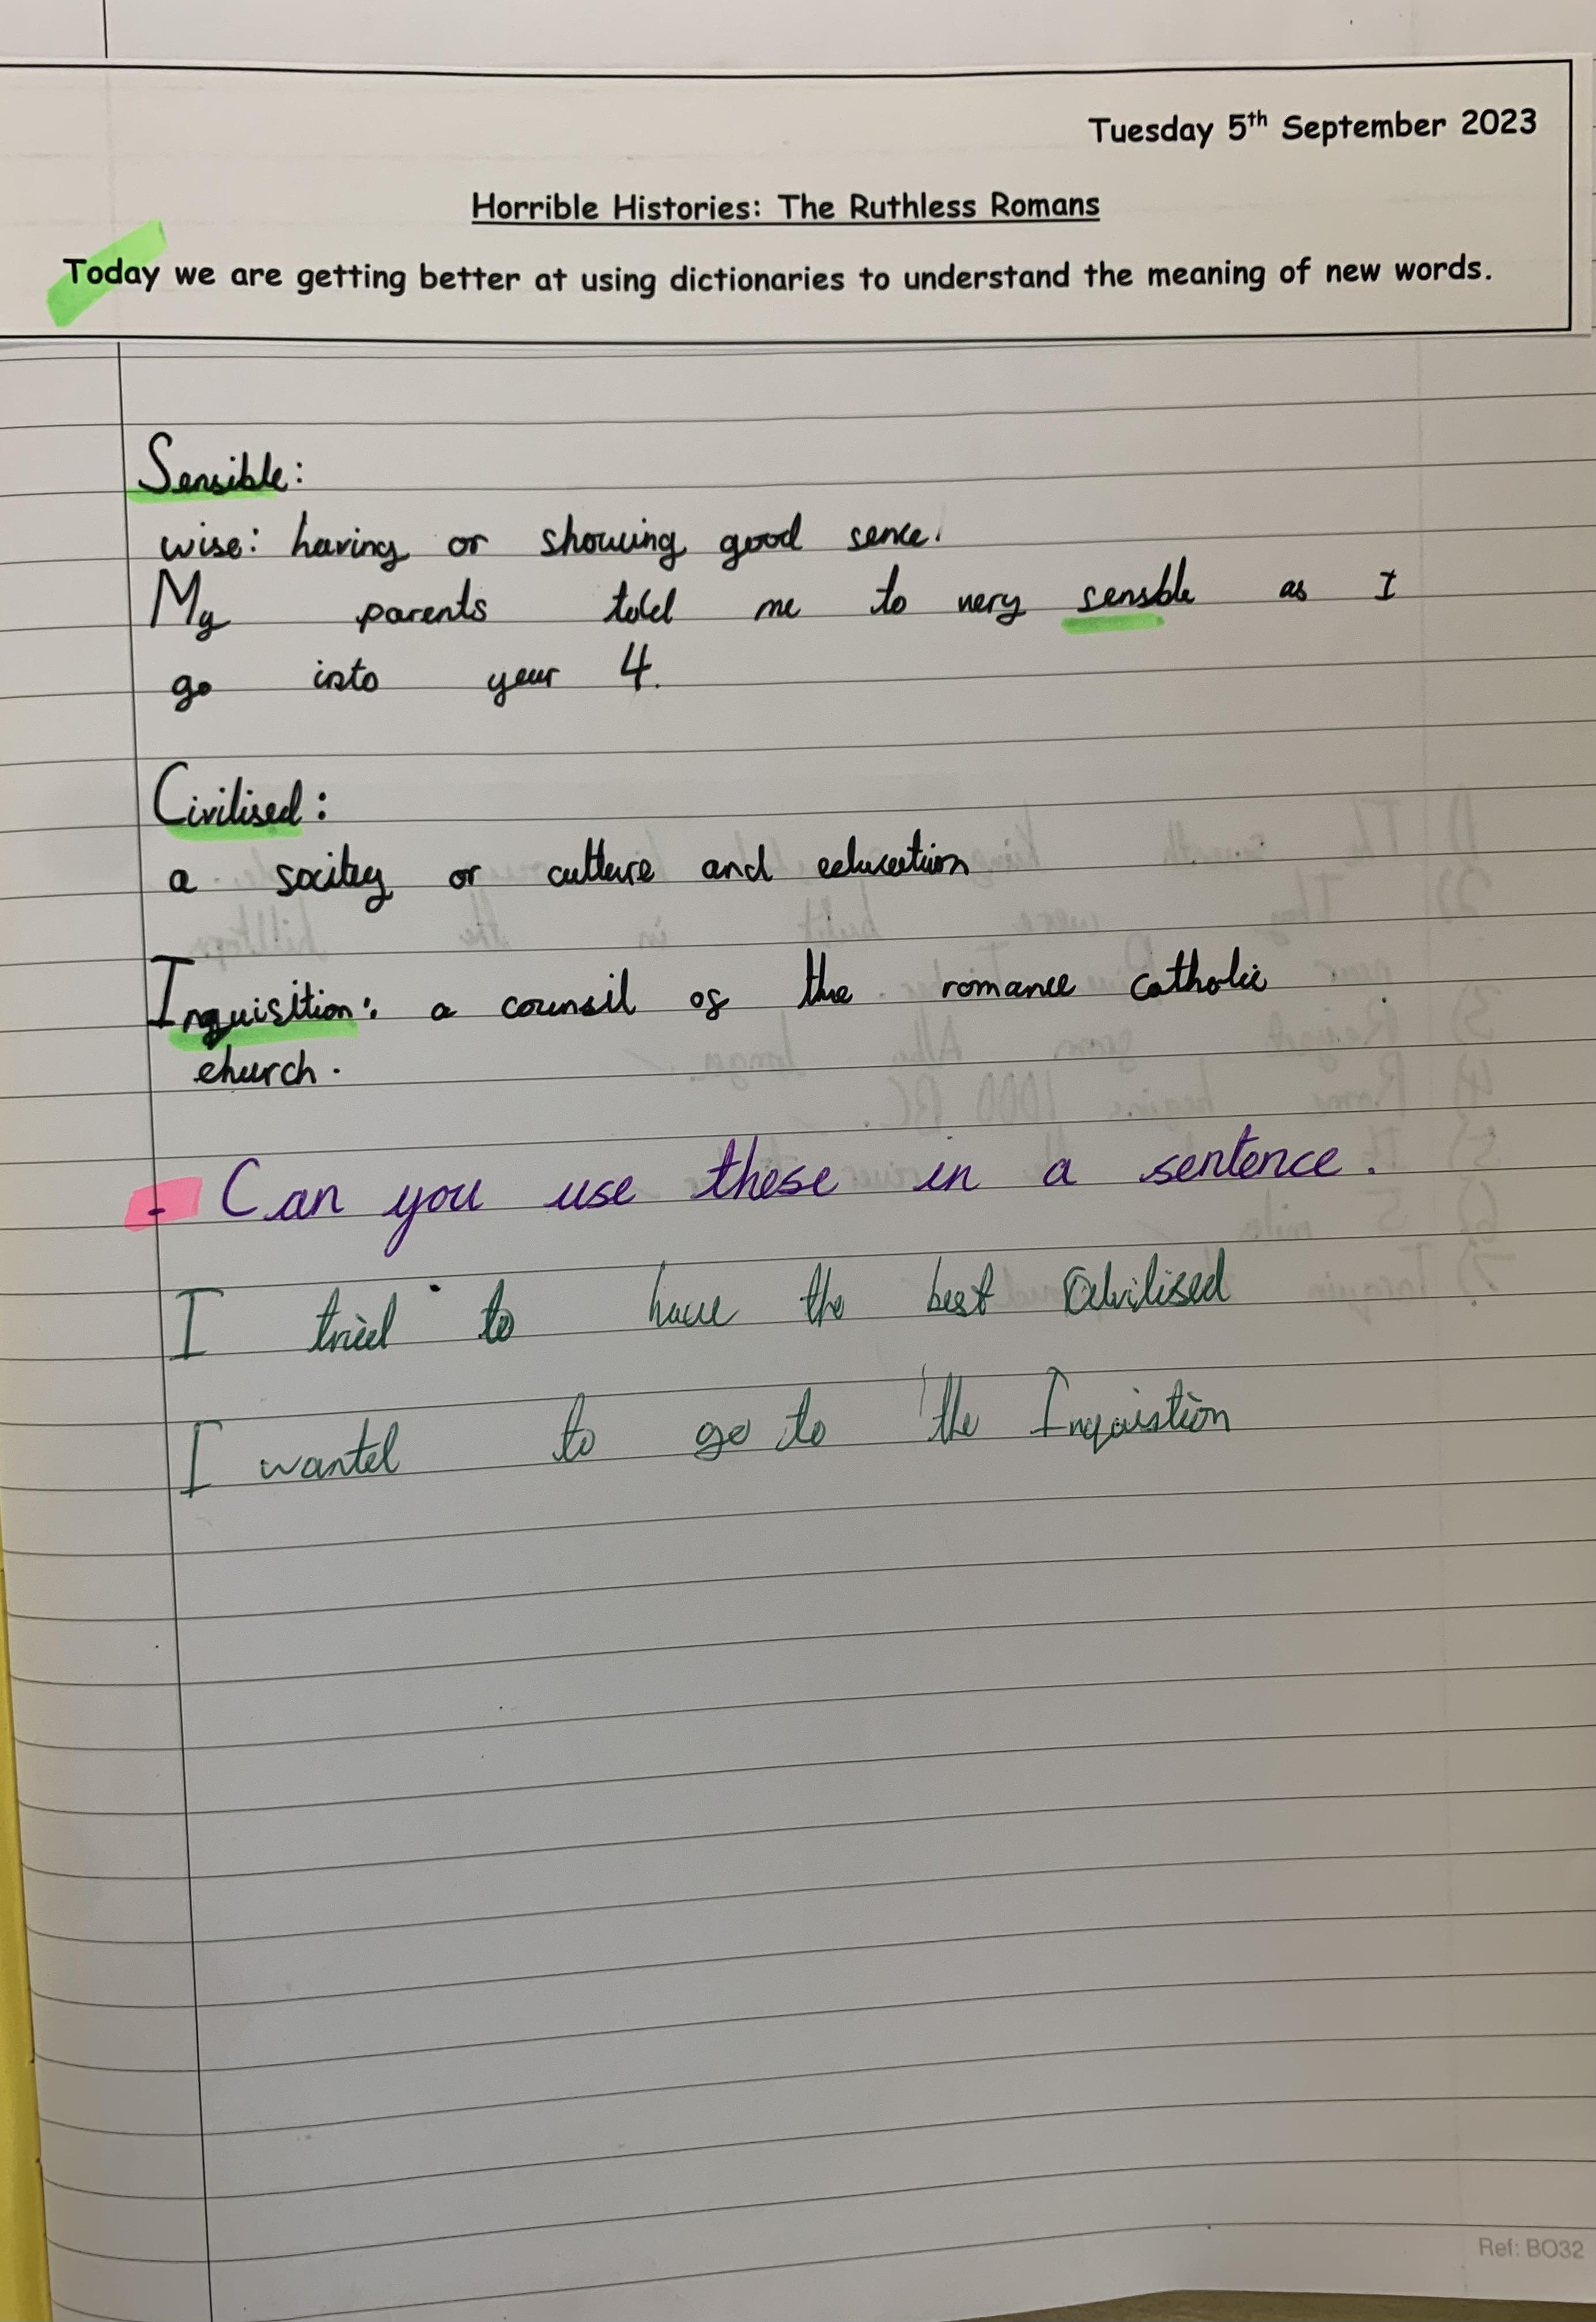 Tuesday 5th September 2023
Horrible Histories: The Ruthless Romans
Today we are getting better at using dictionaries to understand the meaning of new words.
Sensible:
wise: having or showing good sence.
My parents told me to very sensble as I
go into year 4.
Civilised:
a socitey or culture and education
Inquisition: a counsil of the romance catholic
church.
- Can you use these in a sentence.
I tried to have the best civilised
I wanted to go to the Inquistion
Ref: BO32